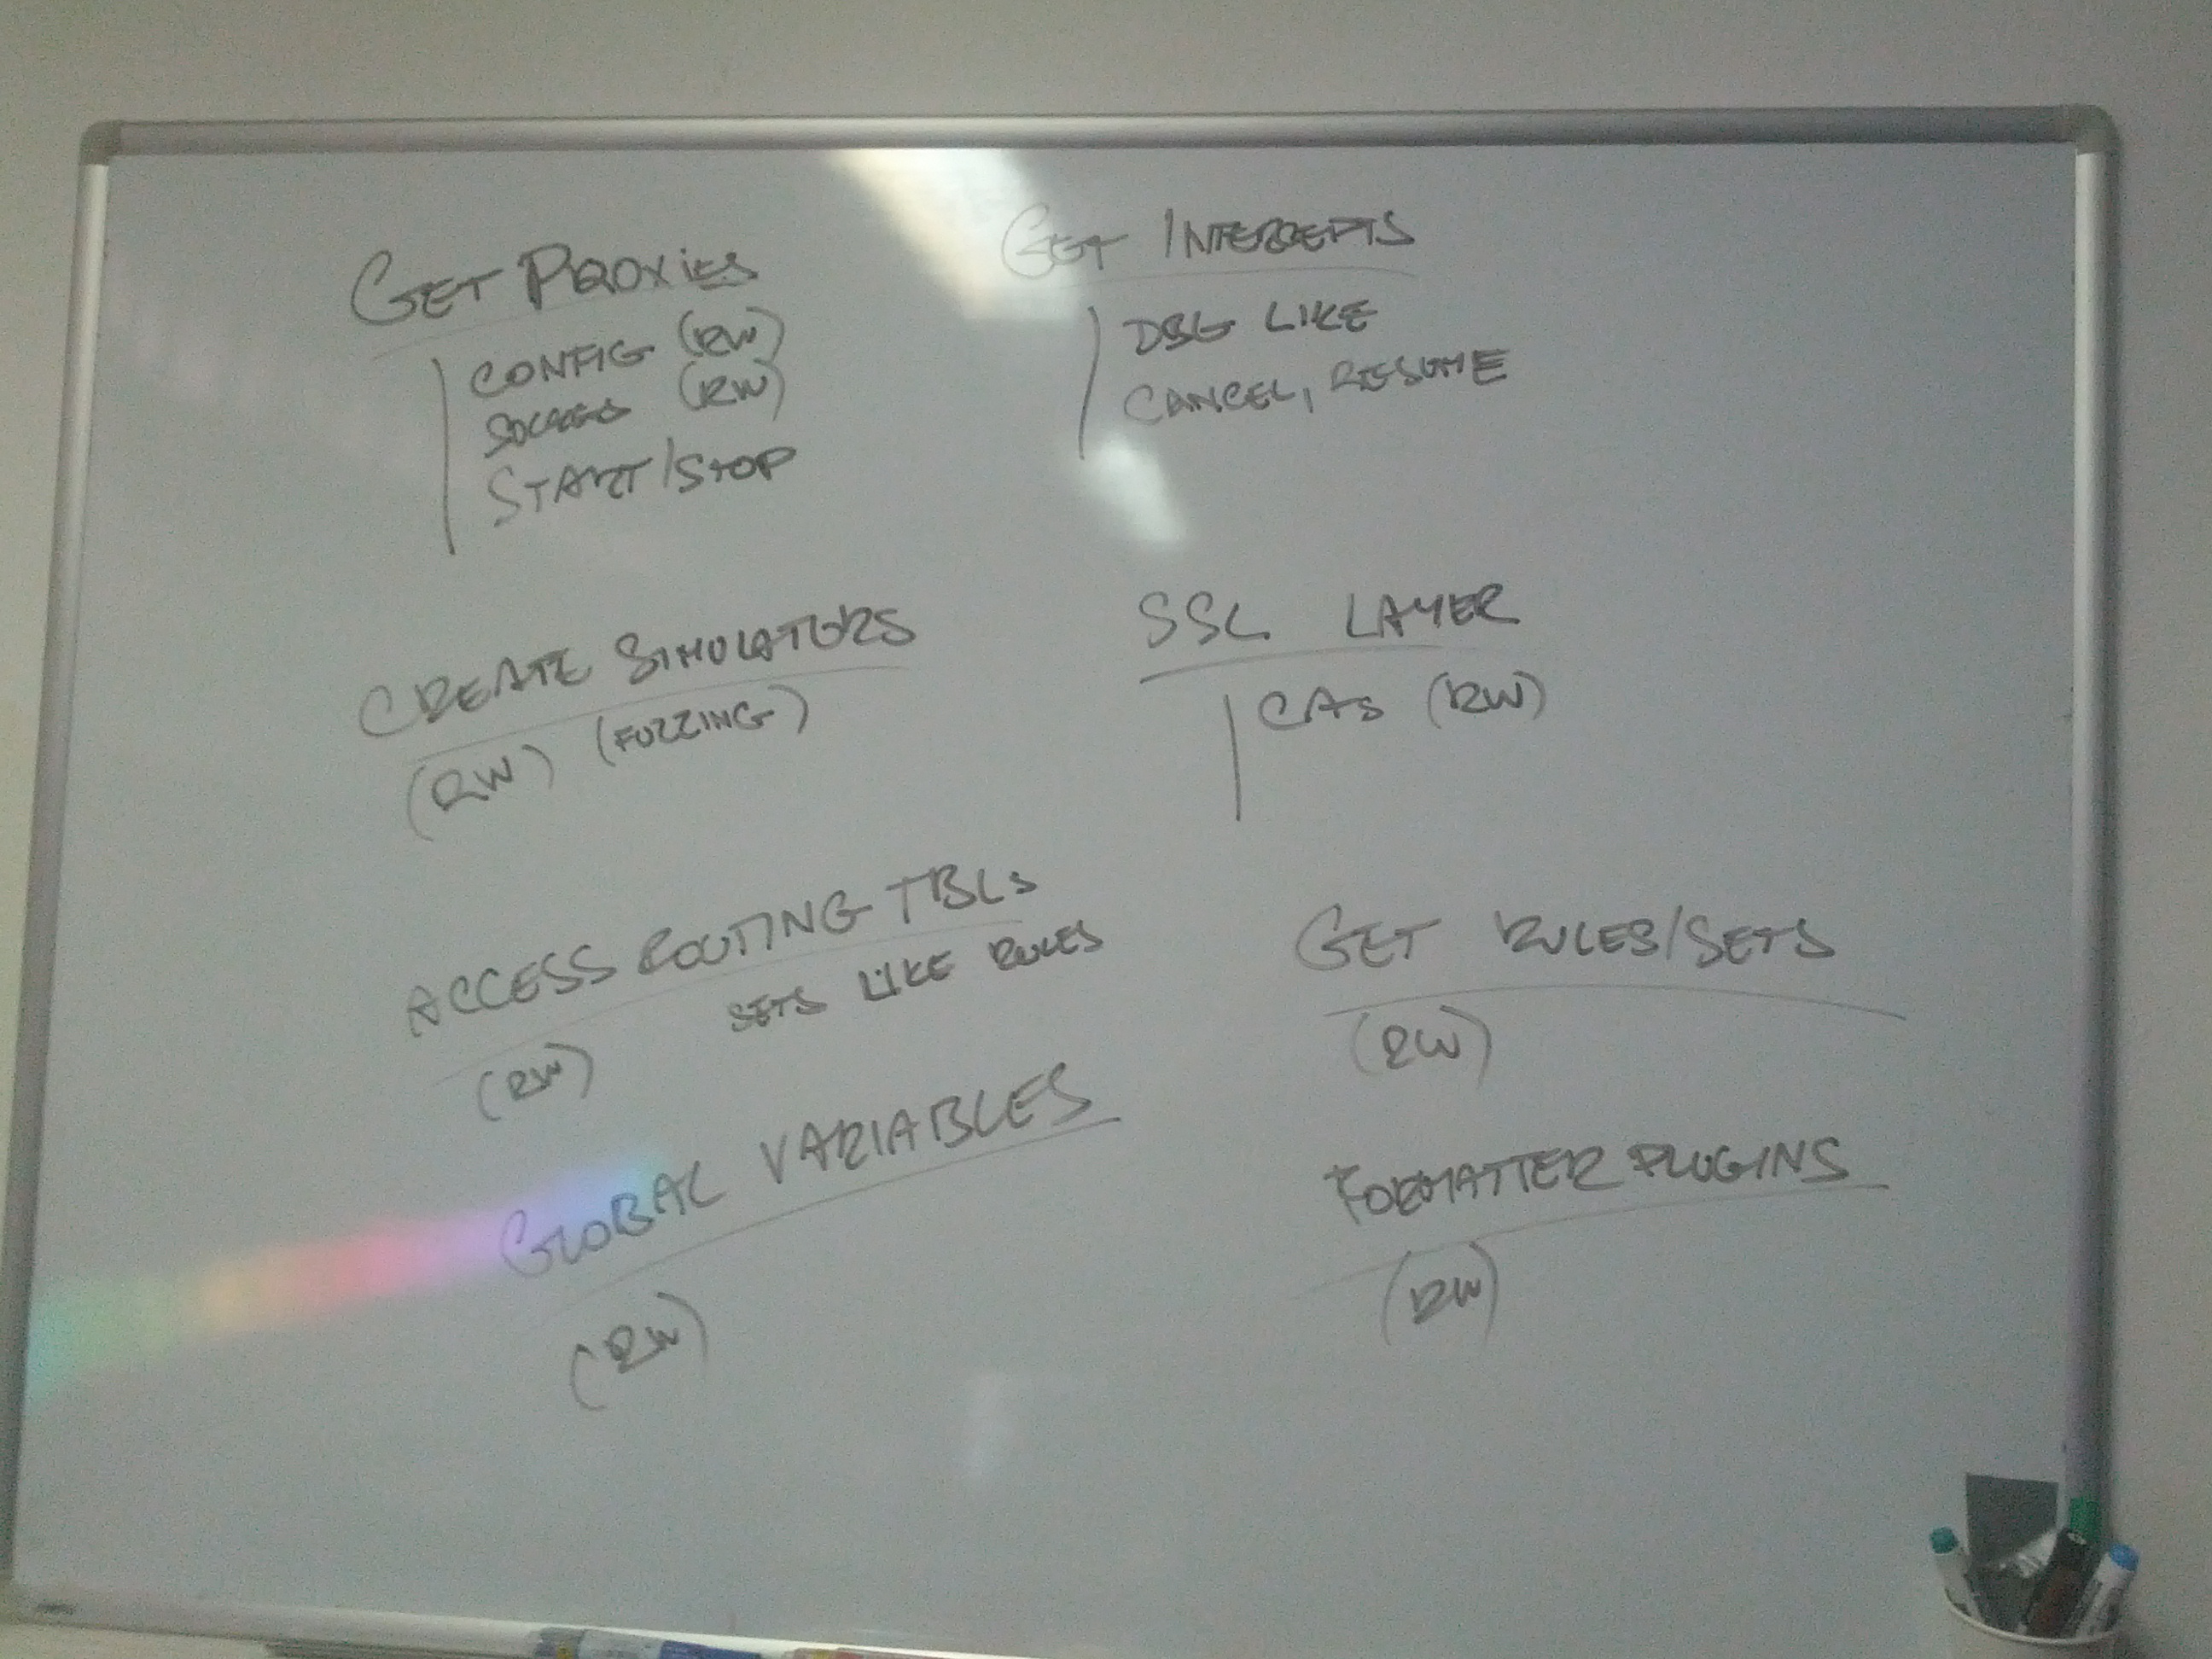 GET PROXIES
CONFIG (RW)
SOCKETS (RW)
START/STOP
GET INTERCEPTS
DBG LIKE
CANCEL, RESUME
CREATE SIMULATORS
(RW) (FUZZING)
SSL LAYER
CAs (RW)
ACCESS ROUTING TBLs
(RW) SETS LIKE RULES
GET RULES/SETS
(RW)
GLOBAL VARIABLES
(RW)
FORMATTER PLUGINS
(RW)